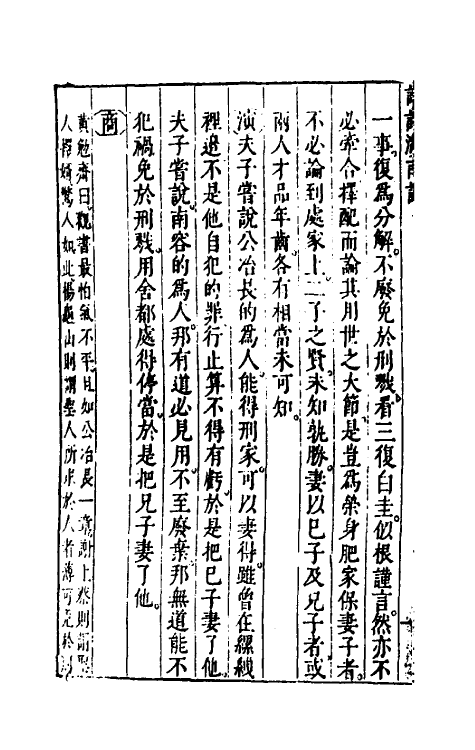 一事。復爲分解。不廢免於刑戮。看三復白圭。似根謹言。然亦不
必牽合擇配而論其用世之大節。是豈爲榮身肥家保妻子者。
不必論到處家上。二子之賢。未知孰勝。妻以己子及兄子者。或
兩人才品年齒各有相當未可知。
演夫子嘗說公冶長的爲人。能得刑家。可以妻得。雖曾在縲絏
裡邊。不是他自犯的罪。行止算不得有虧。於是把己子妻了他。
夫子嘗說。南容的爲人。邦有道必見用。不至廢棄。邦無道能不
犯禍免於刑戮。用舍都處得停當。於是把兄子妻了他。
商
黃勉齋曰。觀書最怕氣不平。且如公冶長一章。謝上蔡則謂聖
人擇婿驚人如此。楊龜山則謂聖人所求於人者薄。可免於